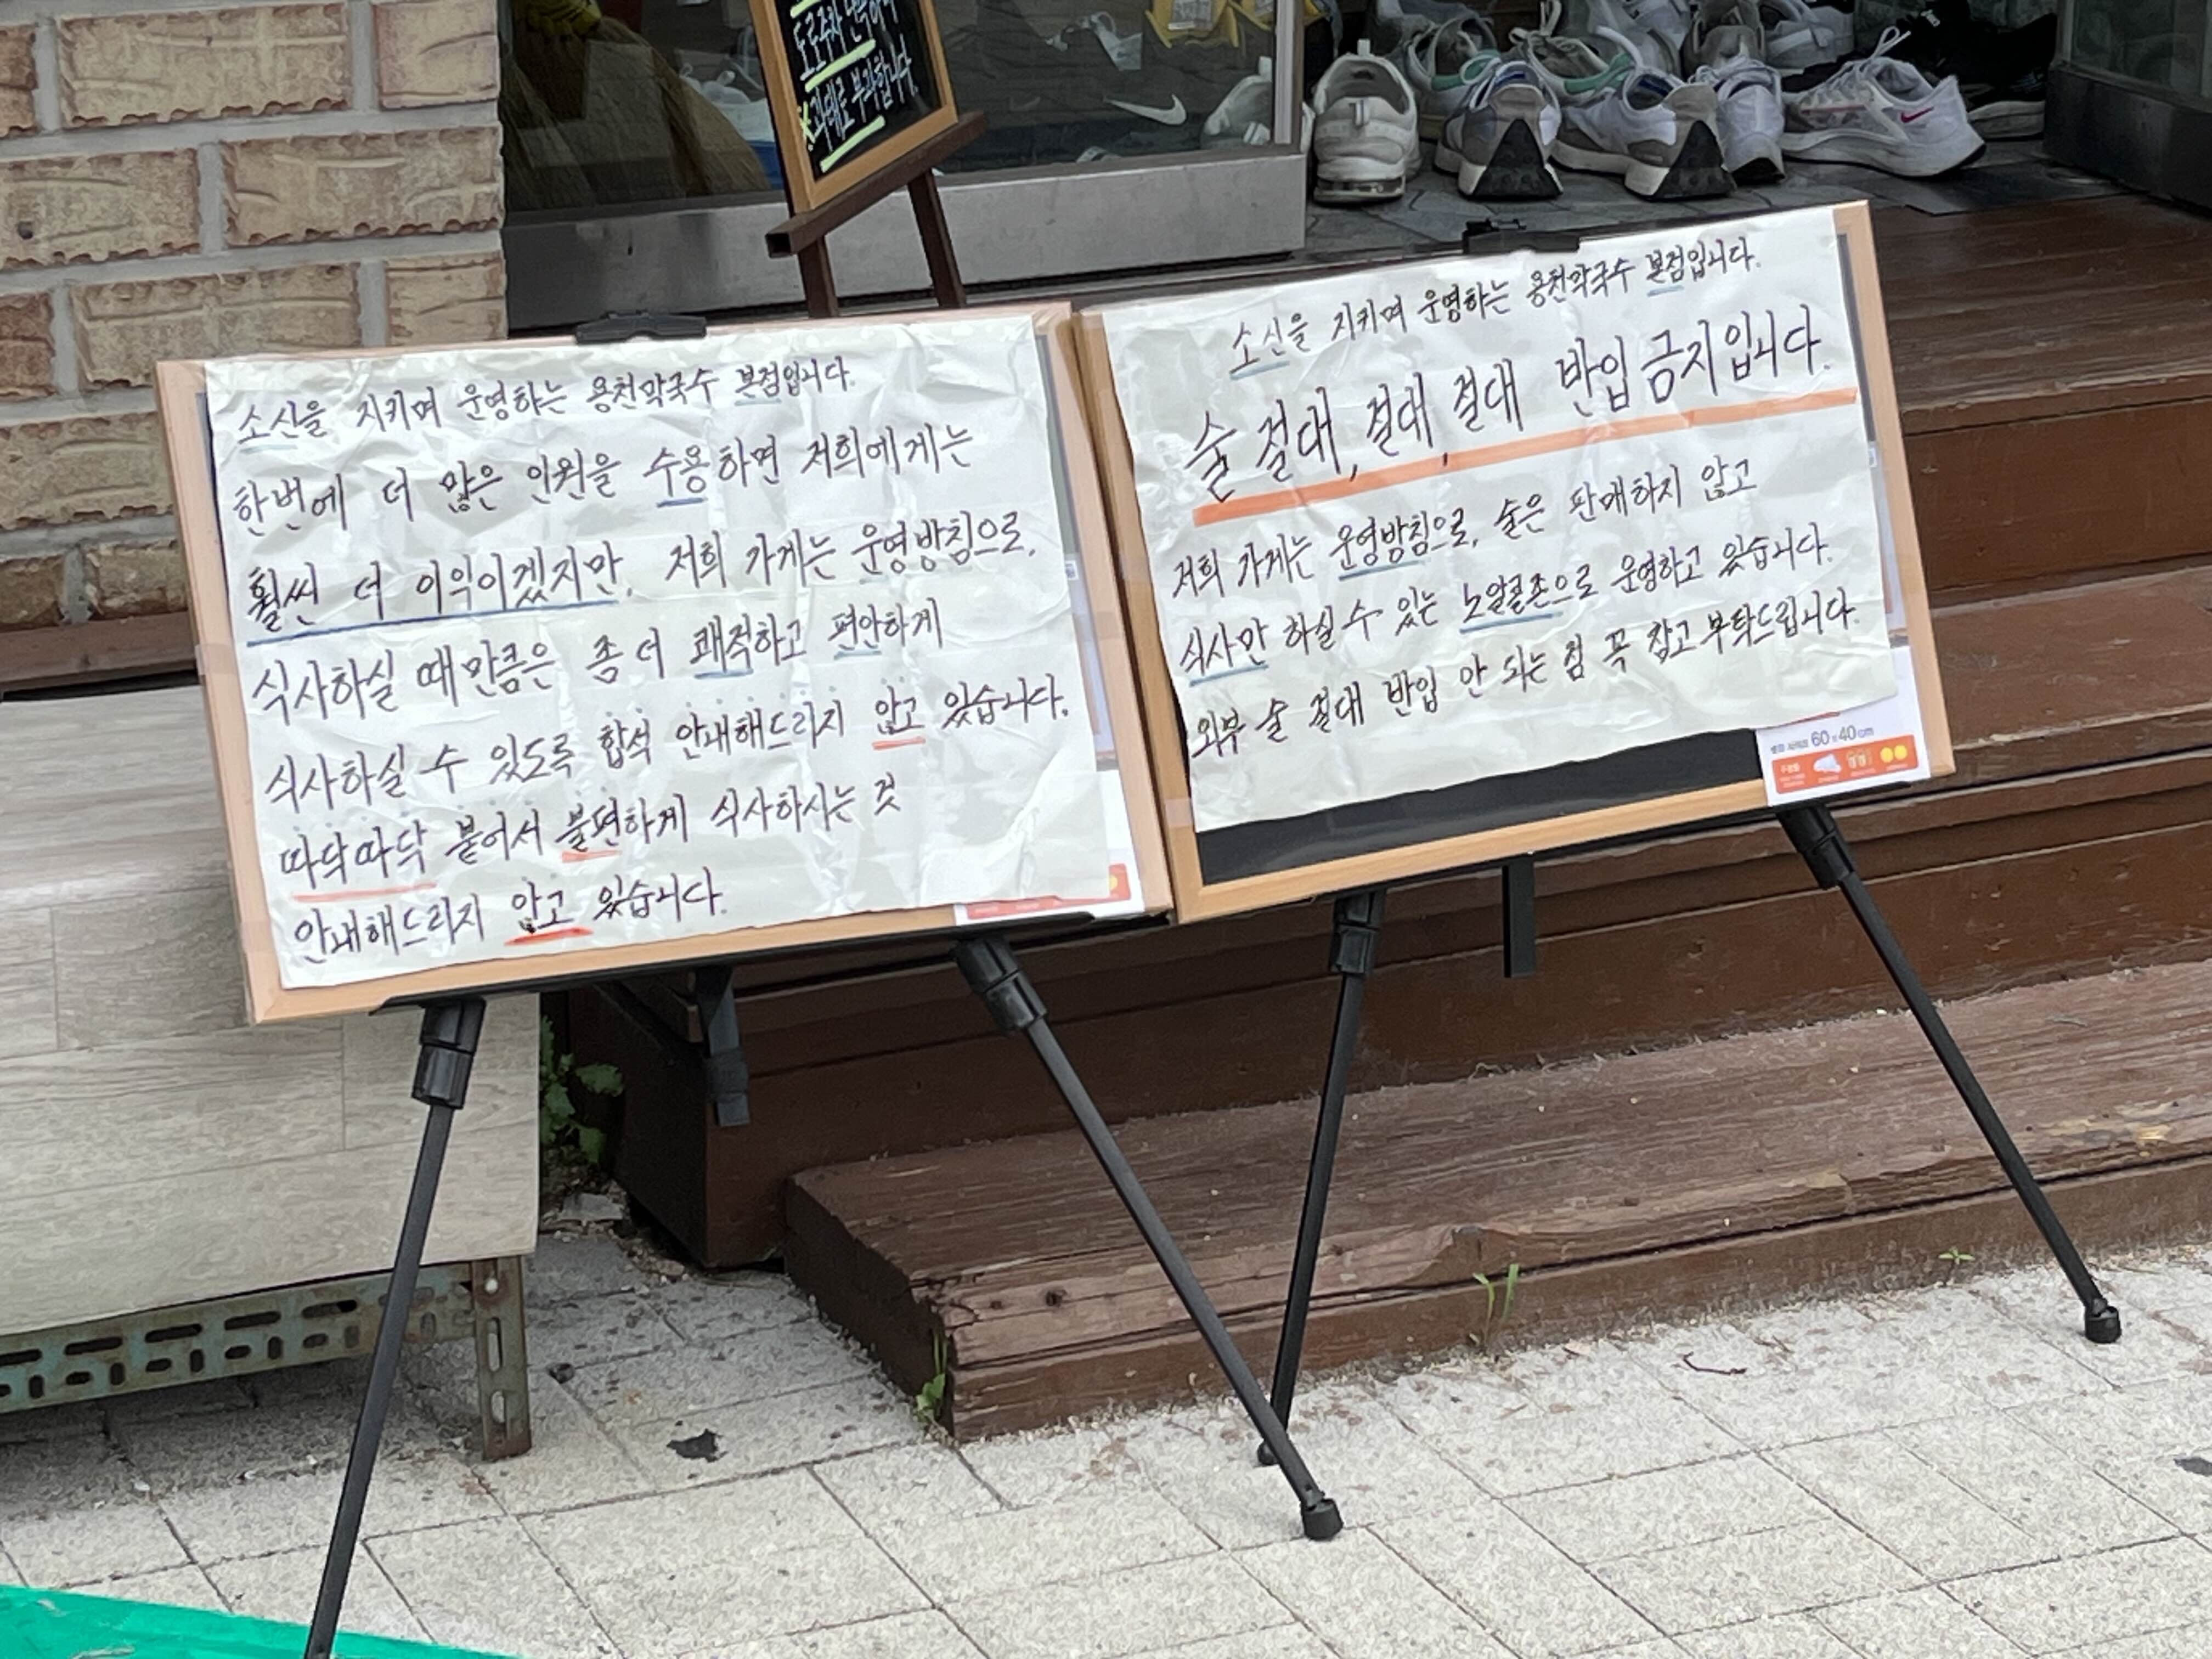 도로주차
※과태료 부과합니다.
소신을 지키며 운영하는 용천막국수 본점입니다.
한번에 더 많은 인원을 수용하면 저희에게는
훨씬 더 이익이겠지만, 저희 가게는 운영방침으로,
식사하실 때만큼은 좀 더 쾌적하고 편안하게
식사하실 수 있도록 합석 안내해드리지 않고 있습니다.
따닥따닥 붙어서 불편하게 식사하시는 것
안내해드리지 않고 있습니다.
소신을 지키며 운영하는 용천막국수 본점입니다.
술 절대, 절대, 절대 반입금지입니다.
저희 가게는 운영방침으로, 술은 판매하지 않고
식사만 하실 수 있는 노알콜존으로 운영하고 있습니다.
외부 술 절대 반입 안 되는 점 꼭 참고 부탁드립니다.
60 x 40 cm